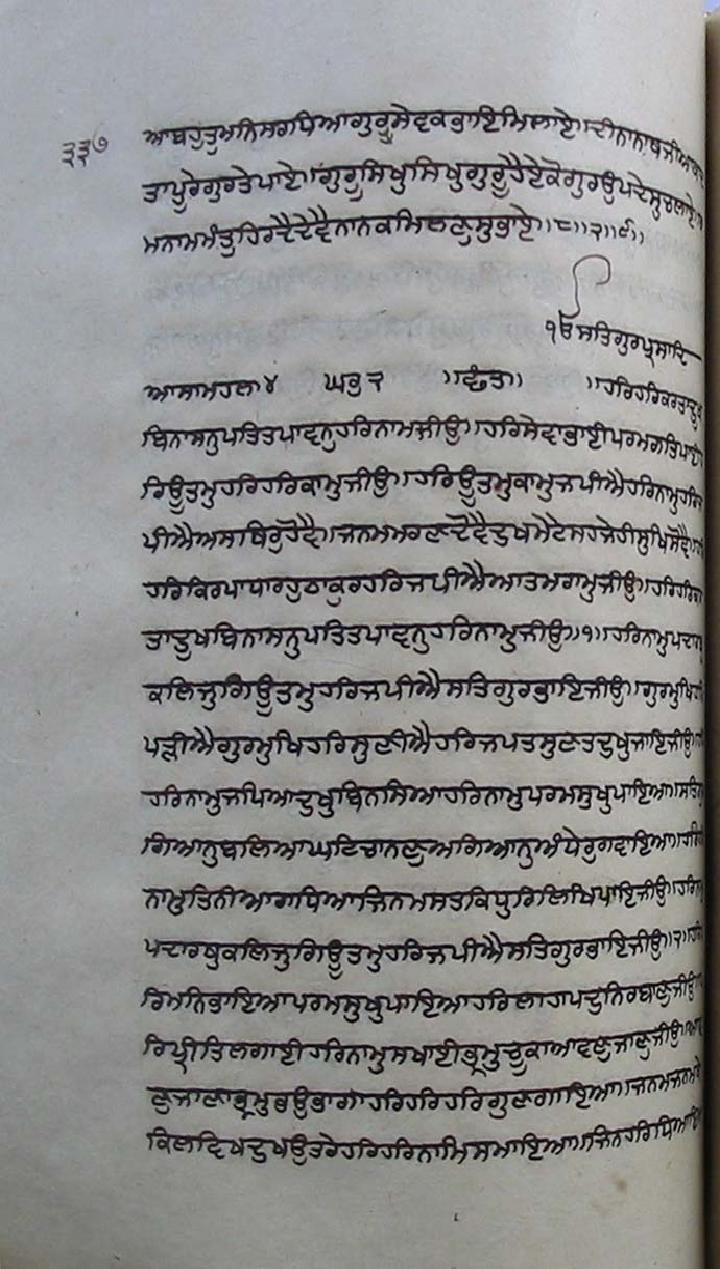 ੩੩੭
ਆਬਹੁਤੁਅਨਿਸਰਾਧਿਆਗੁਰੂਸੇਵਕਭਾਇਮਿਲਾਏ॥ਦੀਨਾਨਾਥਜੀਆ
ਤਾਪੂਰੇਗੁਰਤੇਪਾਏ॥ਗੁਰੂਸਿਖੁਸਿਖੁਗੁਰੂਹੈਏਕੋਗੁਰਉਪਦੇਸੁਚਲਾਏ॥
ਮਨਾਮਮੰਤੁਹਿਰਦੈਦੇਵੈਨਾਨਕਮਿਲਣੁਸੁਭਾਏ॥੮॥੨॥੯॥
੧ਓਸਤਿਗੁਰਪ੍ਰਸਾਦਿ
ਆਸਾਮਹਲਾ੪ ਘਰੁ੨ ॥ਛੰਤ॥ ॥ਹਰਿਹਰਿਕਰਤਾਦੂਖ
ਬਿਨਾਸਨੁਪਤਿਤਪਾਵਨੁਹਰਿਨਾਮਜੀਉ॥ਹਰਿਸੇਵਾਭਾਈਪਰਮਗਤਿਪਾਈ
ਰਿਊਤਮੁਹਰਿਹਰਿਕਾਮੁਜੀਉ॥ਹਰਿਊਤਮੁਕਾਮੁਜਪੀਐਹਰਿਨਾਮੁਹਰਿ
ਪੀਐਅਸਥਿਰੁਹੋਵੈ॥ਜਨਮਮਰਣਦੋਵੈਦੁਖਮੇਟੇਸਹਜੇਹੀਸੁਖਿਸੋਵੈ॥
ਹਰਿਕਿਰਪਾਧਾਰਹੁਠਾਕੁਰਹਰਿਜਪੀਐਆਤਮਰਾਮੁਜੀਉ॥ਹਰਿਹਰਿਕਰ
ਤਾਦੂਖਬਿਨਾਸਨੁਪਤਿਤਪਾਵਨੁਹਰਿਨਾਮੁਜੀਉ॥੧॥ਹਰਿਨਾਮੁਪਦਾਰਥੁ
ਕਲਿਜੁਗਿਊਤਮੁਹਰਿਜਪੀਐਸਤਿਗੁਰਭਾਇਜੀਉ॥ਗੁਰਮੁਖਿਹਰਿ
ਪੜੀਐਗੁਰਮੁਖਿਹਰਿਸੁਣੀਐਹਰਿਜਪਤਸੁਣਤਦੁਖੁਜਾਇਜੀਉ॥
ਹਰਿਨਾਮੁਜਪਿਆਦੁਖੁਬਿਨਸਿਆਹਰਿਨਾਮੁਪਰਮਸੁਖੁਪਾਇਆ॥ਸਤਿਗੁਰ
ਗਿਆਨੁਬਲਿਆਘਟਿਚਾਨਣੁਅਗਿਆਨੁਅੰਧੇਰੁਗਵਾਇਆ॥ਹਰਿਹਰਿ
ਨਾਮੁਤਿਨੀਆਰਾਧਿਆਜਿਨਮਸਤਕਿਧੁਰਿਲਿਖਿਪਾਇਜੀਉ॥ਹਰਿਨਾਮੁ
ਪਦਾਰਥੁਕਲਿਜੁਗਿਊਤਮੁਹਰਿਜਪੀਐਸਤਿਗੁਰਭਾਇਜੀਉ॥੨॥ਹਰਿ
ਰਿਮਨਿਭਾਇਆਪਰਮਸੁਖੁਪਾਇਆਹਰਿਲਾਹਾਪਦੁਨਿਰਬਾਣੁਜੀਉ॥
ਰਿਪ੍ਰੀਤਿਲਗਾਈਹਰਿਨਾਮੁਸਖਾਈਭ੍ਰਮੁਚੂਕਾਆਵਣੁਜਾਣੁਜੀਉ॥ਆਵ
ਣੁਜਾਣਾਭ੍ਰਮੁਭਉਭਾਗਾਹਰਿਹਰਿਹਰਿਗੁਣਗਾਇਆ॥ਜਨਮਜਨਮਕੇ
ਕਿਲਵਿਖਦੁਖਉਤਰੇਹਰਿਹਰਿਨਾਮਿਸਮਾਇਆ॥ਜਿਨਹਰਿਧਿਆਇ